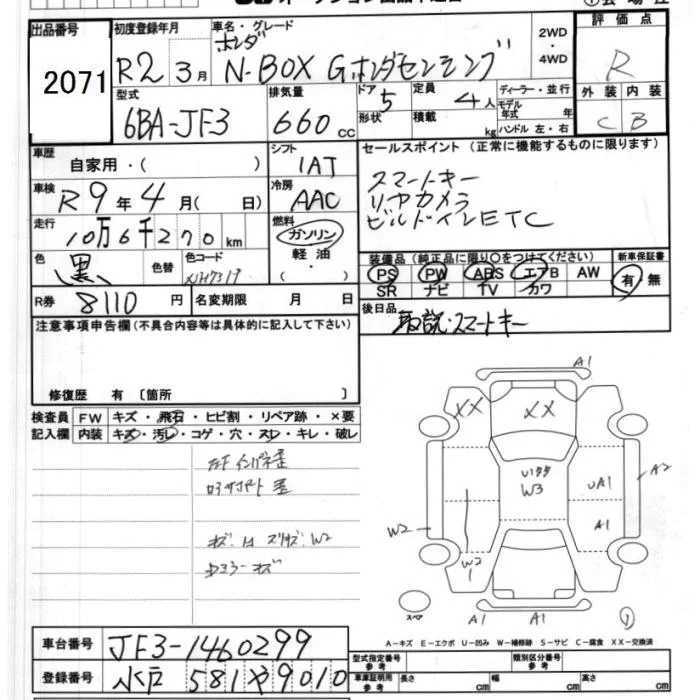 出品番号 2071
初度登録年月 R2 3月
車名・グレード ホンダ N-BOX Gホンダセンシング
2WD・4WD
評価点 R
型式 6BA-JF3
排気量 660cc
ドア 5
形状
定員 4人
積載 kg
ディーラー・並行
モデル年式 年
ハンドル 左・右
外装 C 内装 B
車歴 自家用・( )
シフト IAT
車検 R9年4月( 日)
冷房 AAC
走行 10万6千270km
燃料 ガソリン 軽油・( )
色 黒 色替 色コード
R券 8110円 名変期限 月 日
セールスポイント(正常に機能するものに限ります)
スマートキー
リヤカメラ
ビルドインETC
装備品(純正品に限り○をつけてください)
PS PW ABS エアB AW
SR ナビ TV カワ
新車保証書 有・無
後日品 取説・スマートキー
注意事項申告欄(不具合内容等は具体的に記入して下さい)
修復歴 有〔箇所 〕
検査員記入欄
FW キズ・飛石・ヒビ割・リペア跡・×要
内装 キズ・汚レ・コゲ・穴・スレ・キレ・破レ
A1
XX XX
W3
UA1
A2
W2
A1
W2
1
A1 A1
スペア
①
A-キズ E-エクボ U-凹み W-補修跡 S-サビ C-腐食 XX-交換済
車台番号 JF3-1460299
登録番号 水戸 581 や 9010
型式指定番号 参考 類別区分番号 参考
車庫証明用 参考 長さ cm 幅 cm 高さ cm